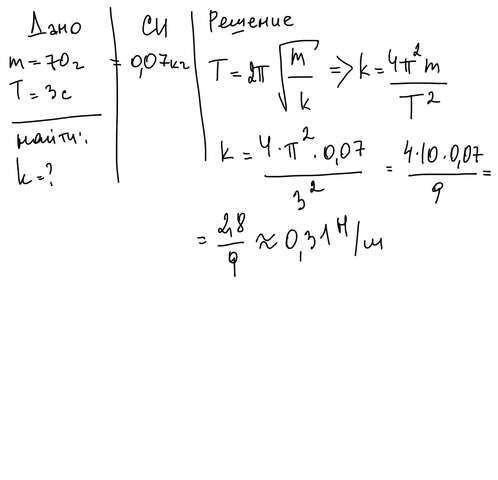 Дано
m = 70г
T = 3с
найти:
k = ?
СИ
= 0,07кг
Решение
T = 2π√(m/k) => k = 4π²m/T²
k = 4·π²·0,07/3² = 4·10·0,07/9 =
= 2,8/9 ≈ 0,31 Н/м